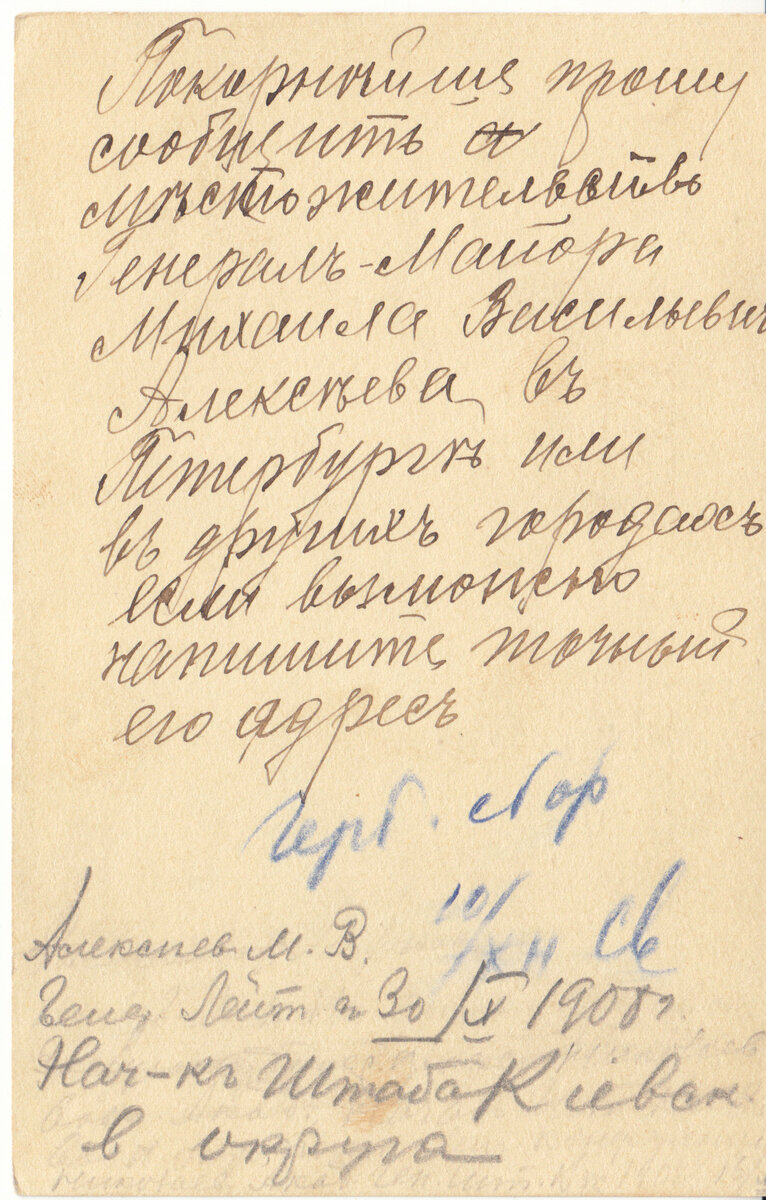 Покорнѣйше прошу
сообщить
мѣстожительство
Генералъ-Майора
Михаила Васильевич
Алексѣева въ
Петербургѣ или
въ другихъ городахъ
если возможно
напишите точный
его адресъ
Герб. сбор
10/XII Св
Алексѣев М. В.
Генер. Лейт 30/X 1908 г.
Нач-къ Штаба Кіевск.
в округа